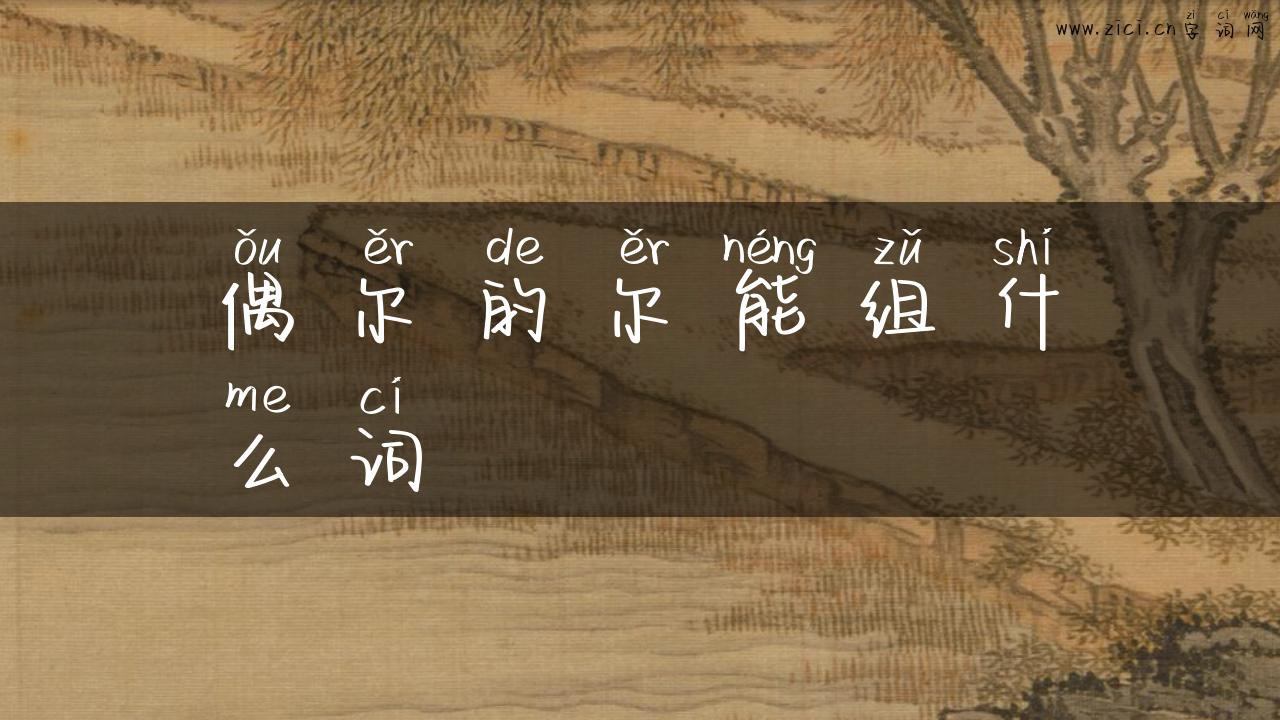 zì cí wǎng
www.zici.cn字词网
ǒu ěr de ěr néng zǔ shí
偶尔的尔能组什
me cí
么词